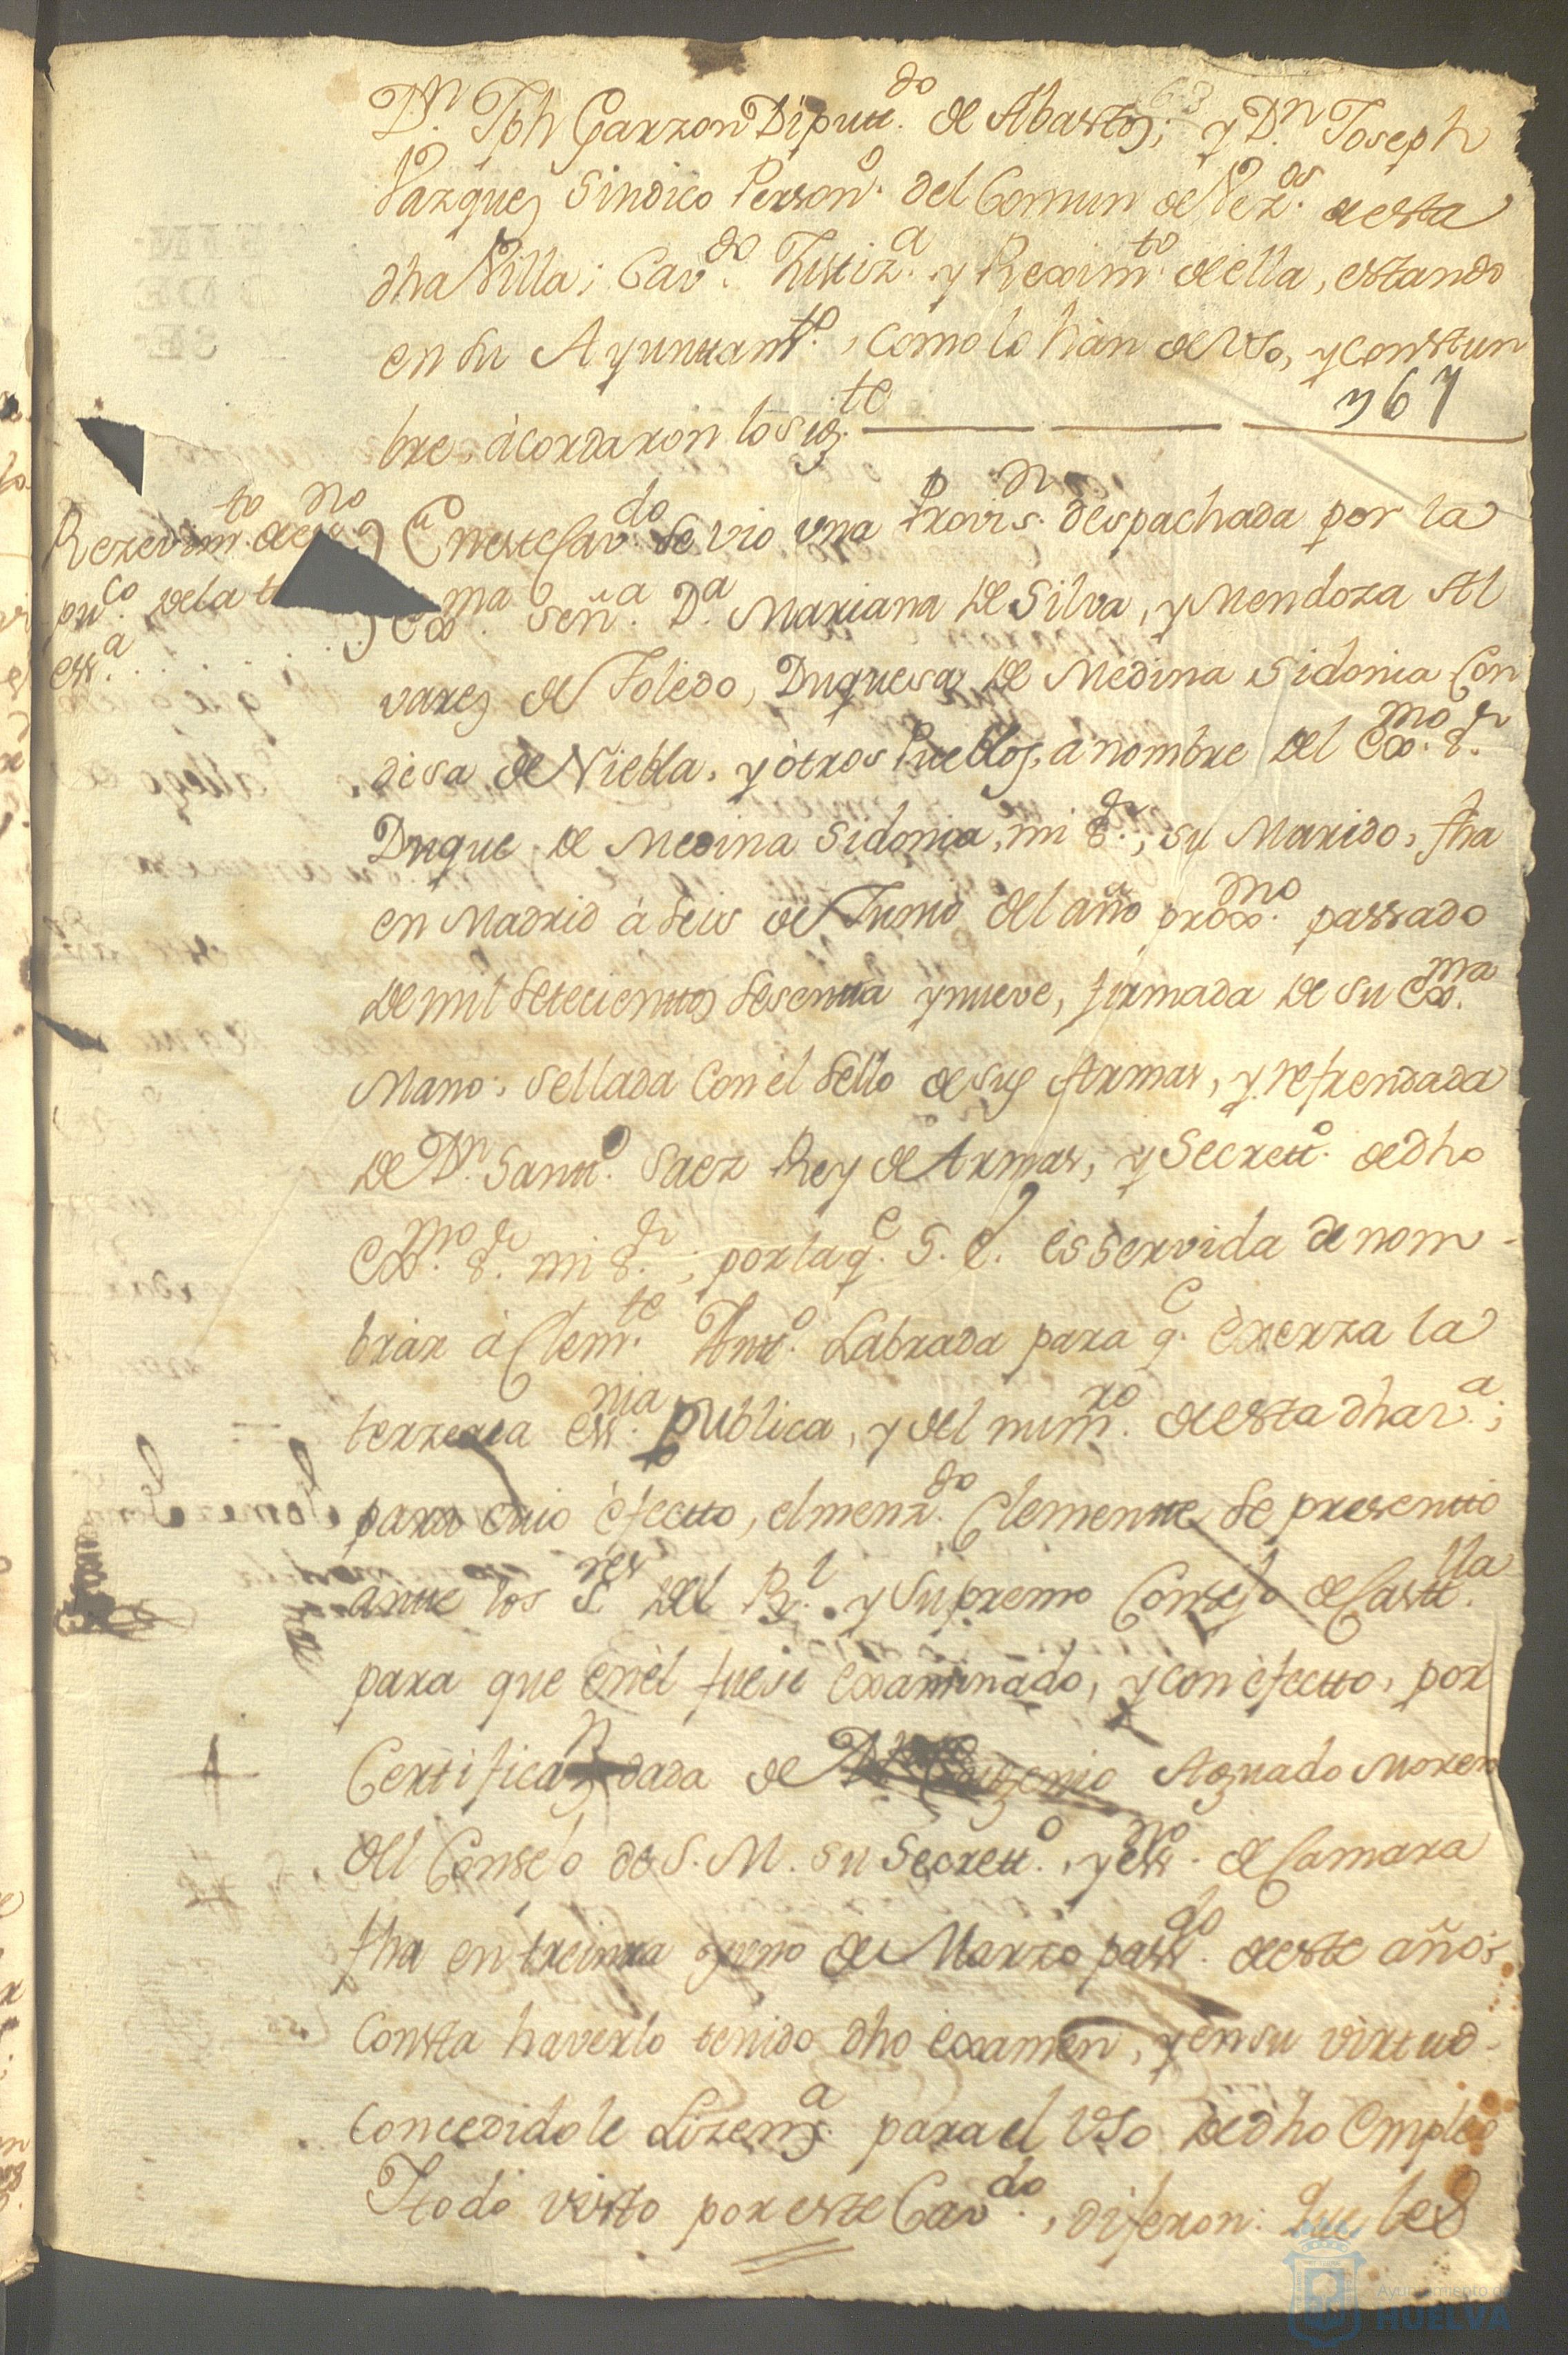 63
Dn. Jph Garzon Diputt.do de Abastos; y Dn. Joseph
Vazquez Sindico Person.o del Comun de Vez.os de esta
dha Villa; Cav.do Justiz.a y Reximto. de ella, estando
en su Ayunttamto., como lo han de Uso, y costum
bre, àcordaron lo sig.te
767
Rezevimto. de essno
pu.co de la t
ess.a
En este Cav.do se vio una Provis.on despachada por la
Exma. Señ.a D.a Mariana de Silva, y Mendoza Al
varez de Toledo, Duquesa de Medina Sidonia Con
desa de Niebla, y òtros Pueblos, a nombre del Exmo. Sr.
Duque de Medina Sidonia, mi Sr., su Marido, fha
en Madrid à seis de Junio del año proxmo. passado
de mil setecienttos sesentta y nueve, firmada de su Exma.
Mano, sellada con èl sello de sus Armas, y refrendada
de Dn. Santt.o Saez Rey de Armas, y Secrett.o de dho
Exmo. Sr. mi Sr.; por la q.e S. E. es servida de nom-
brar à Clem.te Antt.o Labrada para q.e Exerza la
terzera essnia. publica, y del numro. de esta dha v.a;
para cuio èfectto, el menz.do Clementte se presentto
antte los S.res del R.l y Supremo Consejo de Castt.lla
para que en èl fuese examinado, y con èfectto, por
Certificazn dada de Dn Eugenio Aguado Moren
del Conseo de S. M. su Secrett.o, y essno. de Camara
fha en treintta y uno de Marzo pass.do de este año;
Consta haverlo tenido dho examen, y en su virtud
concedidole Lizenz.a para el Uso de dho Empleo
Y todo visto por este Cav.do, dijeron: Que les
Ayuntamiento de
HUELVA